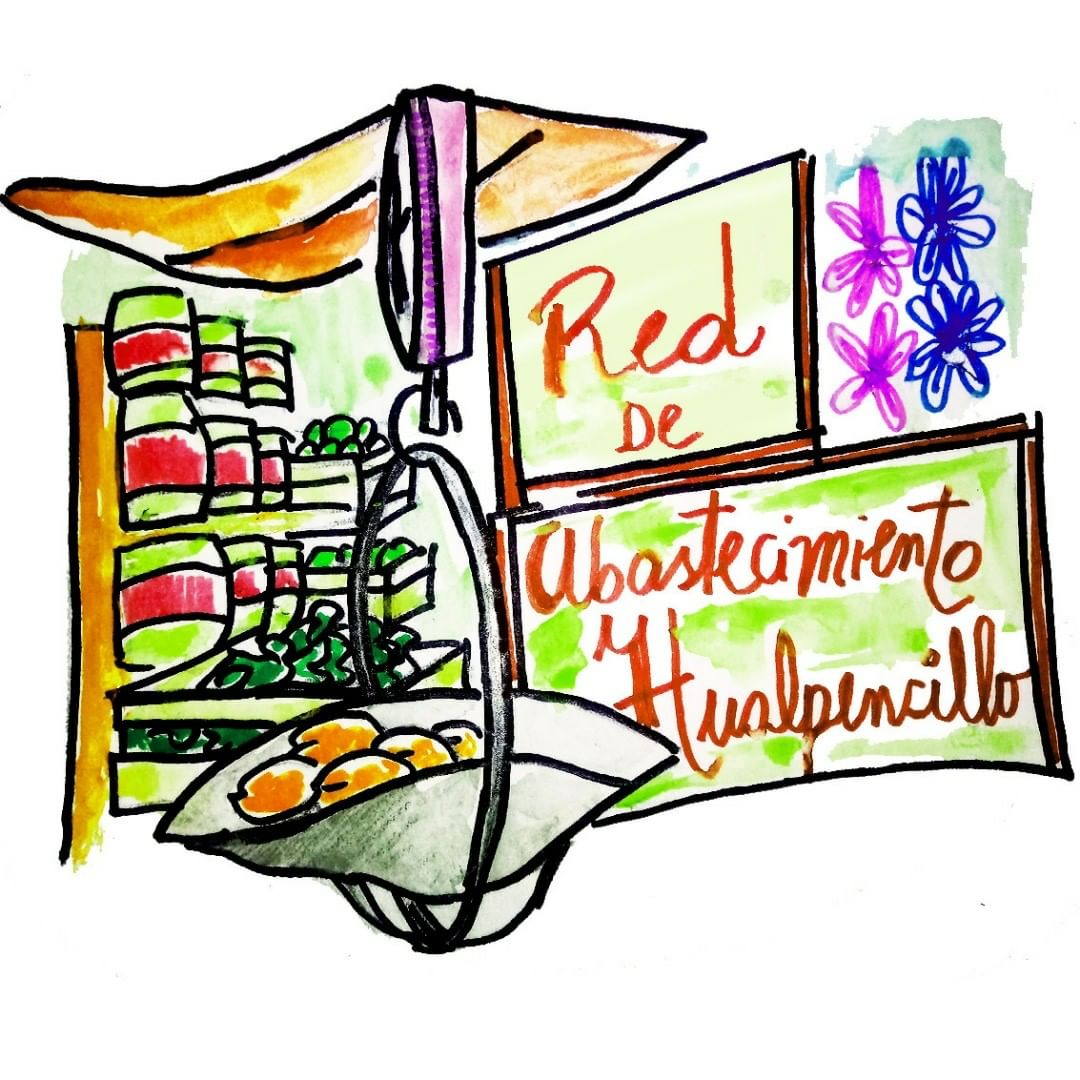 Red
DE
Abastecimiento
Hualpencillo